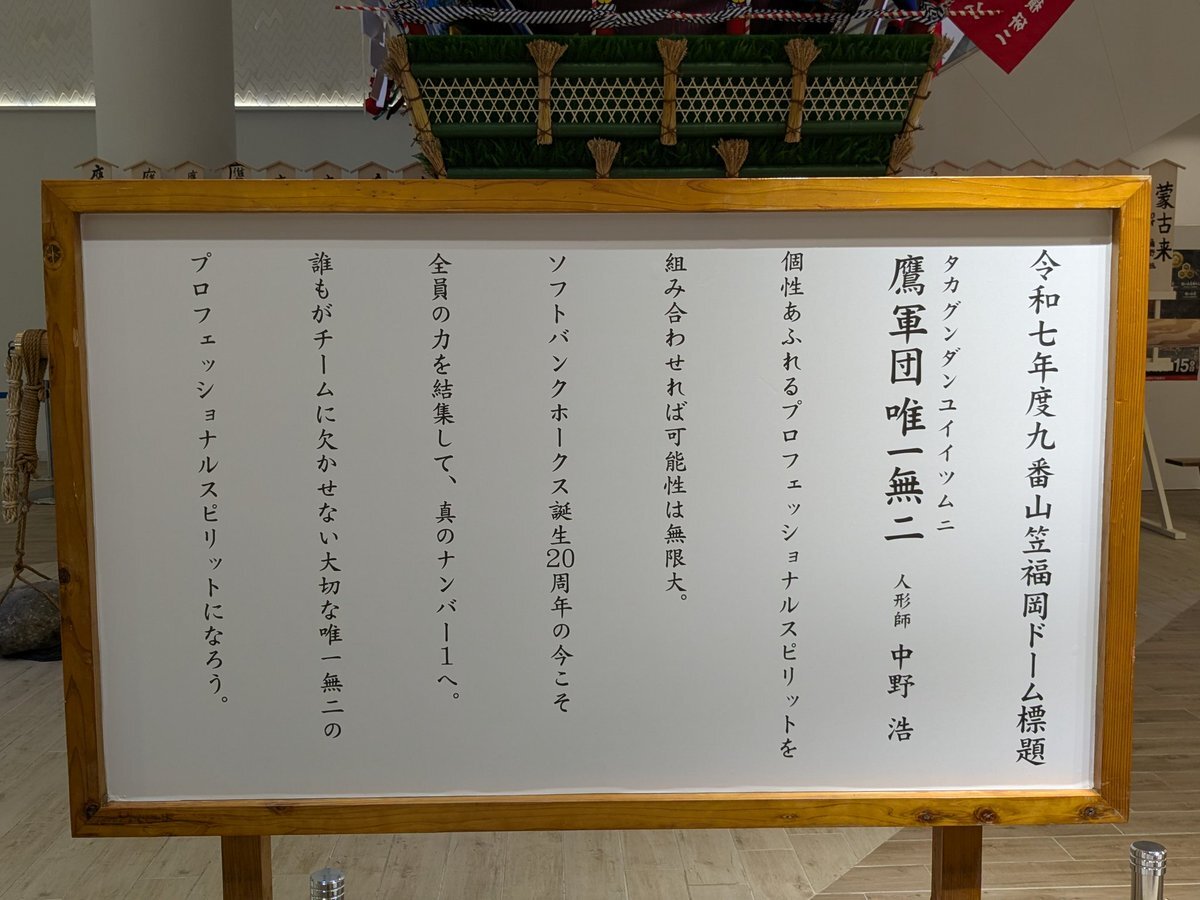 令和七年度九番山笠福岡ドーム標題
タカグンダンユイイツムニ
鷹軍団 唯一無二 人形師 中野 浩
個性あふれるプロフェッショナルスピリットを
組み合わせれば可能性は無限大。
ソフトバンクホークス誕生20周年の今こそ
全員の力を結集して、真のナンバー1へ。
誰もがチームに欠かせない大切な唯一無二の
プロフェッショナルスピリットになろう。
蒙古来